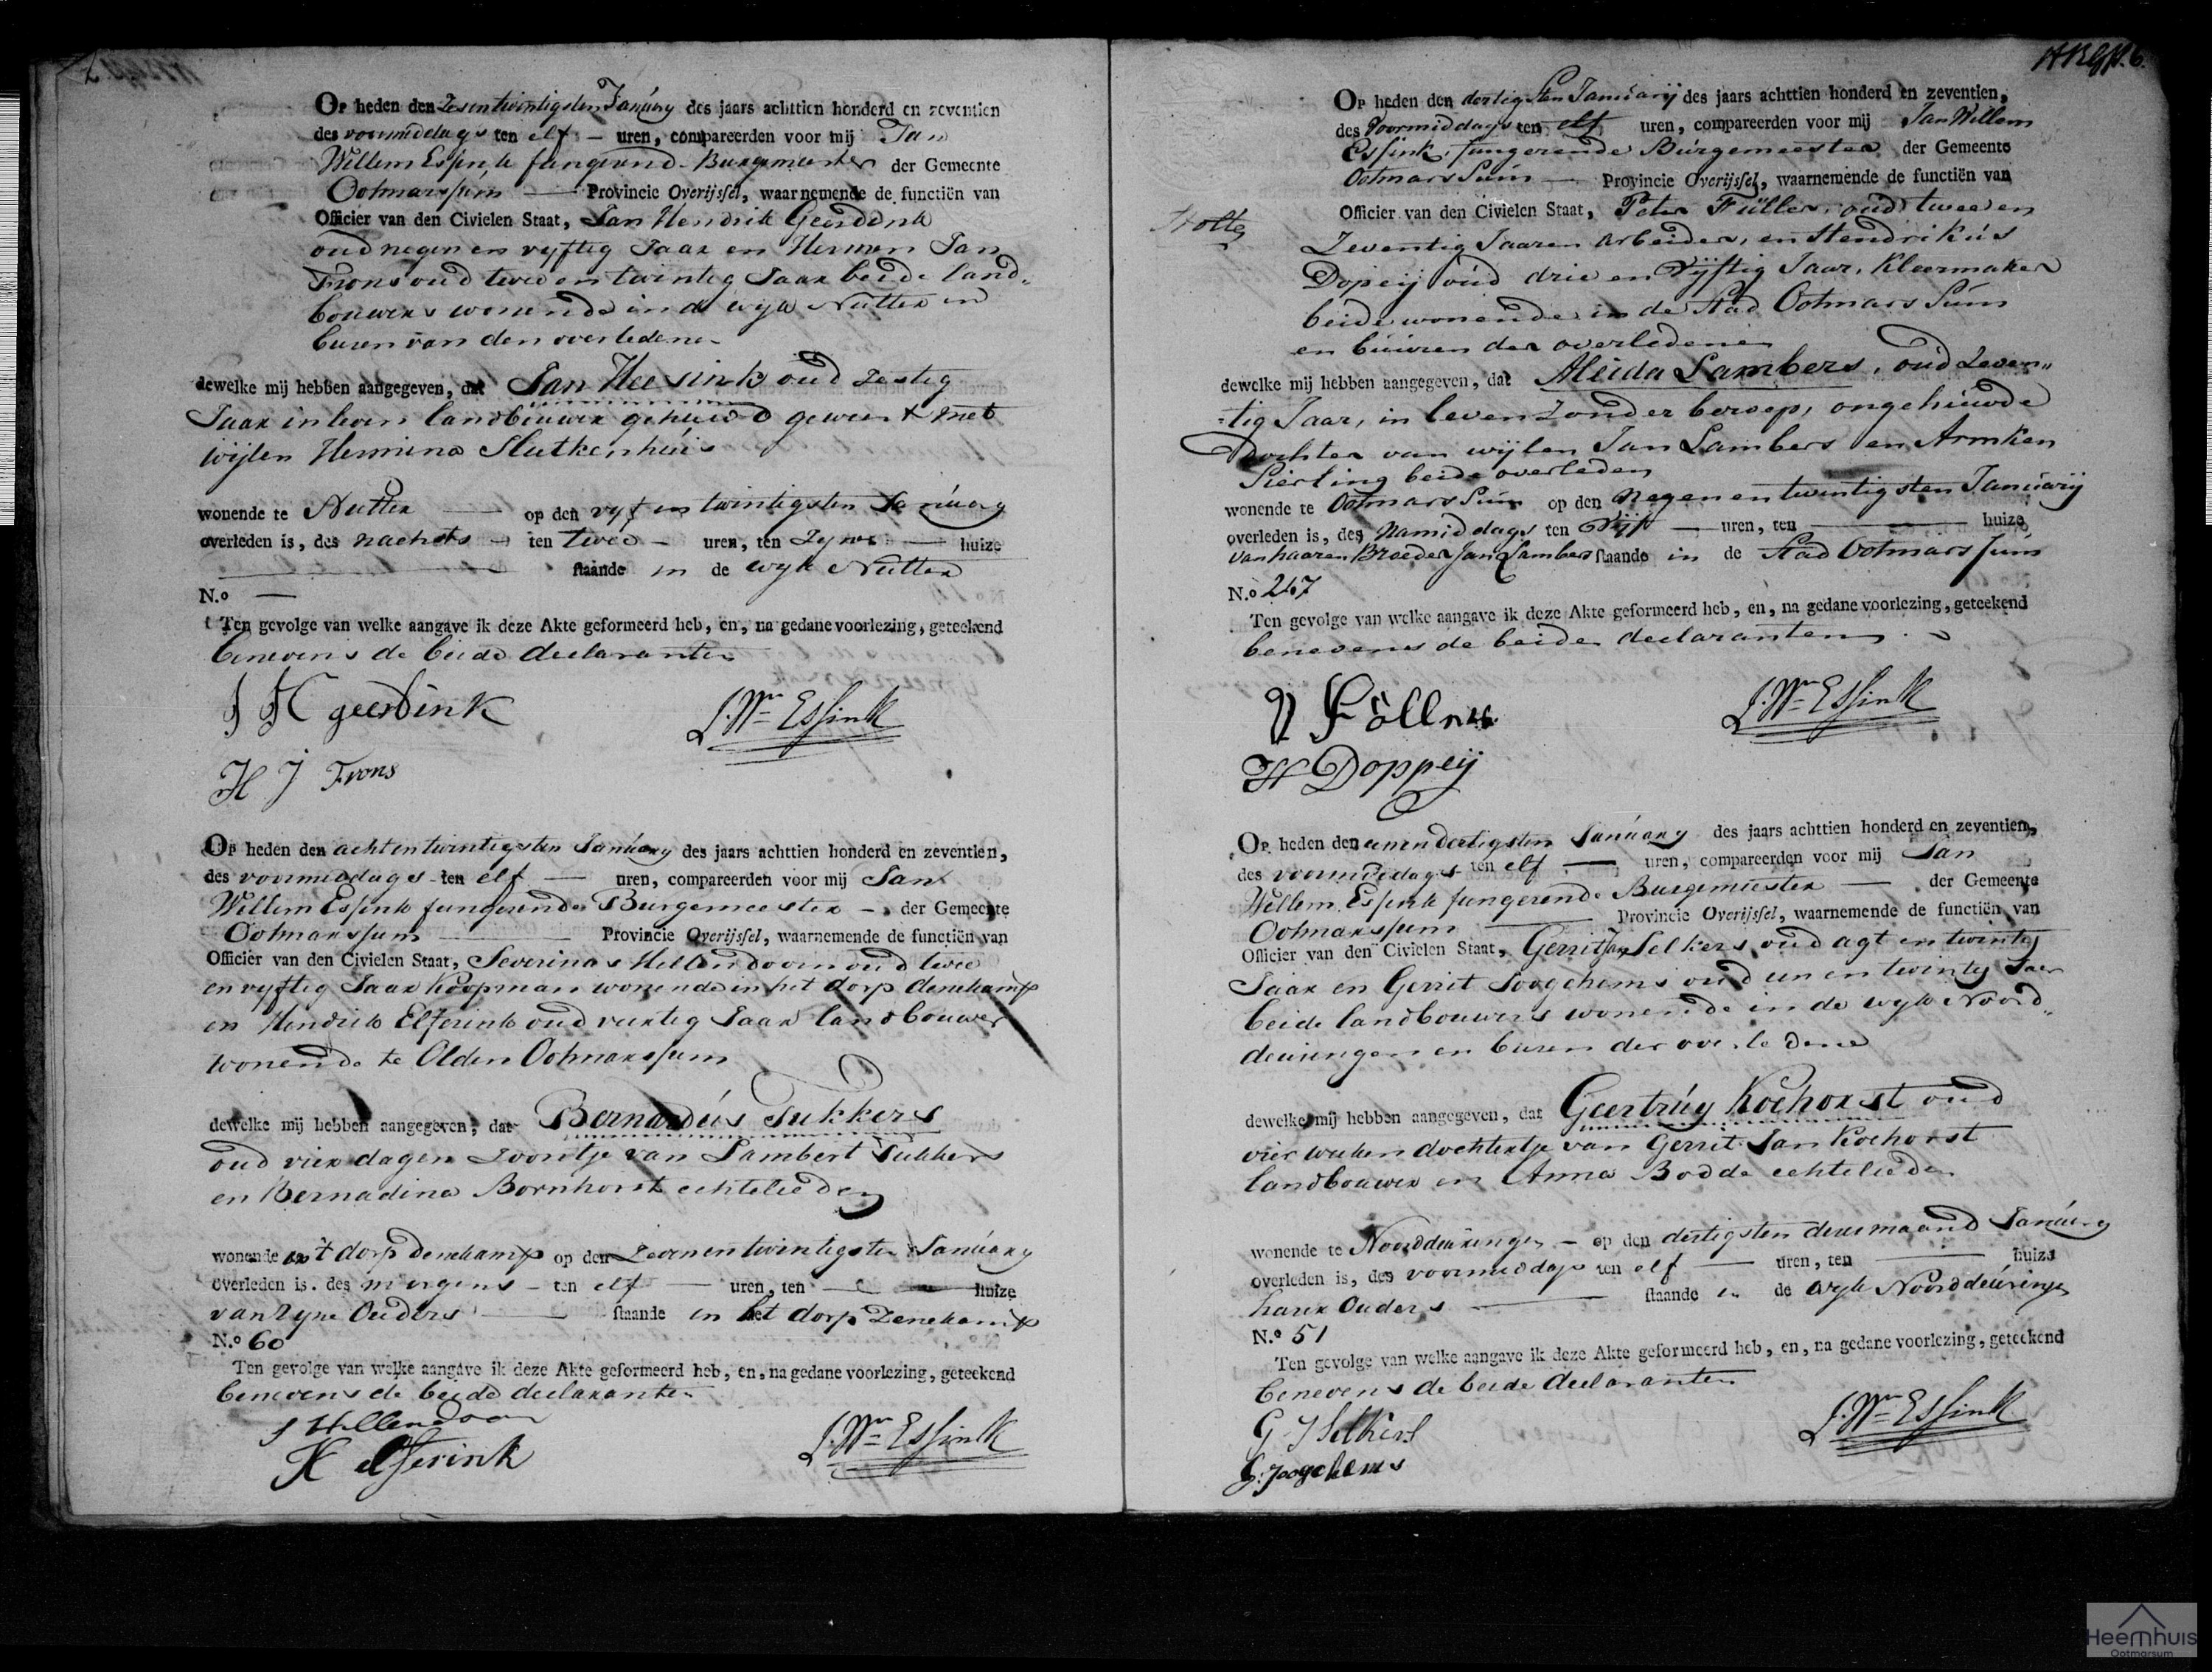 Op heden den Zesentwintigsten January des jaars achttien honderd en zeventien
des voormiddags ten elf – uren, compareerden voor mij Jan
Willem Essink fungerend Burgemeester der Gemeente
Ootmarssum — Provincie Overijssel, waarnemende de functiën van
Officier van den Civielen Staat, Jan Hendrik Geerdink
oud negen en vyftig Jaar en Hermen Jan
Frons oud twee en twintig Jaar beide land„
bouwers wonende in de wyk Nutter en
buren van den overledene
dewelke mij hebben aangegeven, dat Jan Heesink oud zestig
Jaar in leven landbouwer gehuwd geweest met
wijlen Hermina Slutkenhuis
wonende te Nutter — op den vyf en twintigsten January
overleden is, des nachts – ten twee – uren, ten Zyne — huize
— staande in de wyk Nutter
N.o —
Ten gevolge van welke aangave ik deze Akte geformeerd heb, en, na gedane voorlezing, geteekend
benevens de beide declaranten
J H geerdink
J. Wm Essink
H J Frons
Op heden den achtentwintigsten January des jaars achttien honderd en zeventien,
des voormiddags ten elf — uren, compareerden voor mij Jan
Willem Essink fungerende Burgemeester – der Gemeente
Ootmarssum — Provincie Overijssel, waarnemende de functiën van
Officier van den Civielen Staat, Severinus Hellendoorn oud twee
en vyftig Jaar Koopman wonende in het dorp denekamp
en Hendrik Elferink oud veertig Jaar landbouwer
wonende te Olden Ootmarssum
dewelke mij hebben aangegeven, dat Bernardús Tukkers
oud vier dagen zoontje van Lambert Tukkers
en Bernadina Bornhorst echtelieden
wonende in 't dorp denekamp op den Zevenentwintigsten January
overleden is, des morgens – ten elf — uren, ten — huize
van zyne Ouders — staande in het dorp Denekamp
N.o 60
Ten gevolge van welke aangave ik deze Akte geformeerd heb, en, na gedane voorlezing, geteekend
benevens de beide declaranten
S Hellendoorn
H elferink
J. Wm Essink
Op heden den dertigsten Januarij des jaars achttien honderd en zeventien,
des Voormiddags ten elf uren, compareerden voor mij Jan Willem
Essink, fungerende Bürgemeester der Gemeente
Ootmarssúm — Provincie Overijssel, waarnemende de functiën van
Officier van den Civielen Staat, Peter Füller, oud twee en
Zeventig Jaaren Arbeider, en Hendrikús
Dopeij oúd drie en Vijftig Jaar, Kleermaker
beide wonende in de Stad Ootmarssúm
en búúren der overledenen
dewelke mij hebben aangegeven, dat Aleida Lambers, oúd Zeven„
tig Jaar, in leven Zonder beroep, ongehúwde
Dochter van wijlen Jan Lambers en Armken
Sierling beide overleden
wonende te Ootmarssúm op den Negen en twintigsten Janúarij
overleden is, des Namiddags ten Vijf — uren, ten — huize
van haaren Broeder Jan Lambers staande in de Stad Ootmarssúm
N.o 247
Ten gevolge van welke aangave ik deze Akte geformeerd heb, en, na gedane voorlezing, geteekend
benevens de beide declaranten
J. Wm Essink
H Doppeij
Op heden den eenendertigsten Janúary des jaars achttien honderd en zeventien,
des voormiddags ten elf — uren, compareerden voor mij Jan
Willem Essink fungerende Burgemeester — der Gemeente
Ootmarssum — Provincie Overijssel, waarnemende de functiën van
Officier van den Civielen Staat, Gerrit Jan Selkers oud agt en twintig
Jaar en Gerrit Joogehems oud een en twintig Jaar
beide landbouwers wonende in de wyk Noord„
deuringen en buren der overledene
dewelke mij hebben aangegeven, dat Geertrúy Kochorst oud
vier weken dochtertje van Gerrit Jan Kochorst
landbouwer en Anna Bodde echtelieden
wonende te Noorddeuringen – op den dertigsten deser maand Janúary
overleden is, des voormiddags ten elf — uren, ten — huize
harer Ouders — staande in de wyk Noorddeúringen
N.o 51
Ten gevolge van welke aangave ik deze Akte geformeerd heb, en, na gedane voorlezing, geteekend
benevens de beide declaranten
G J Selkers
J. Wm Essink
G: Joogehems
Heemhuis
Ootmarsum